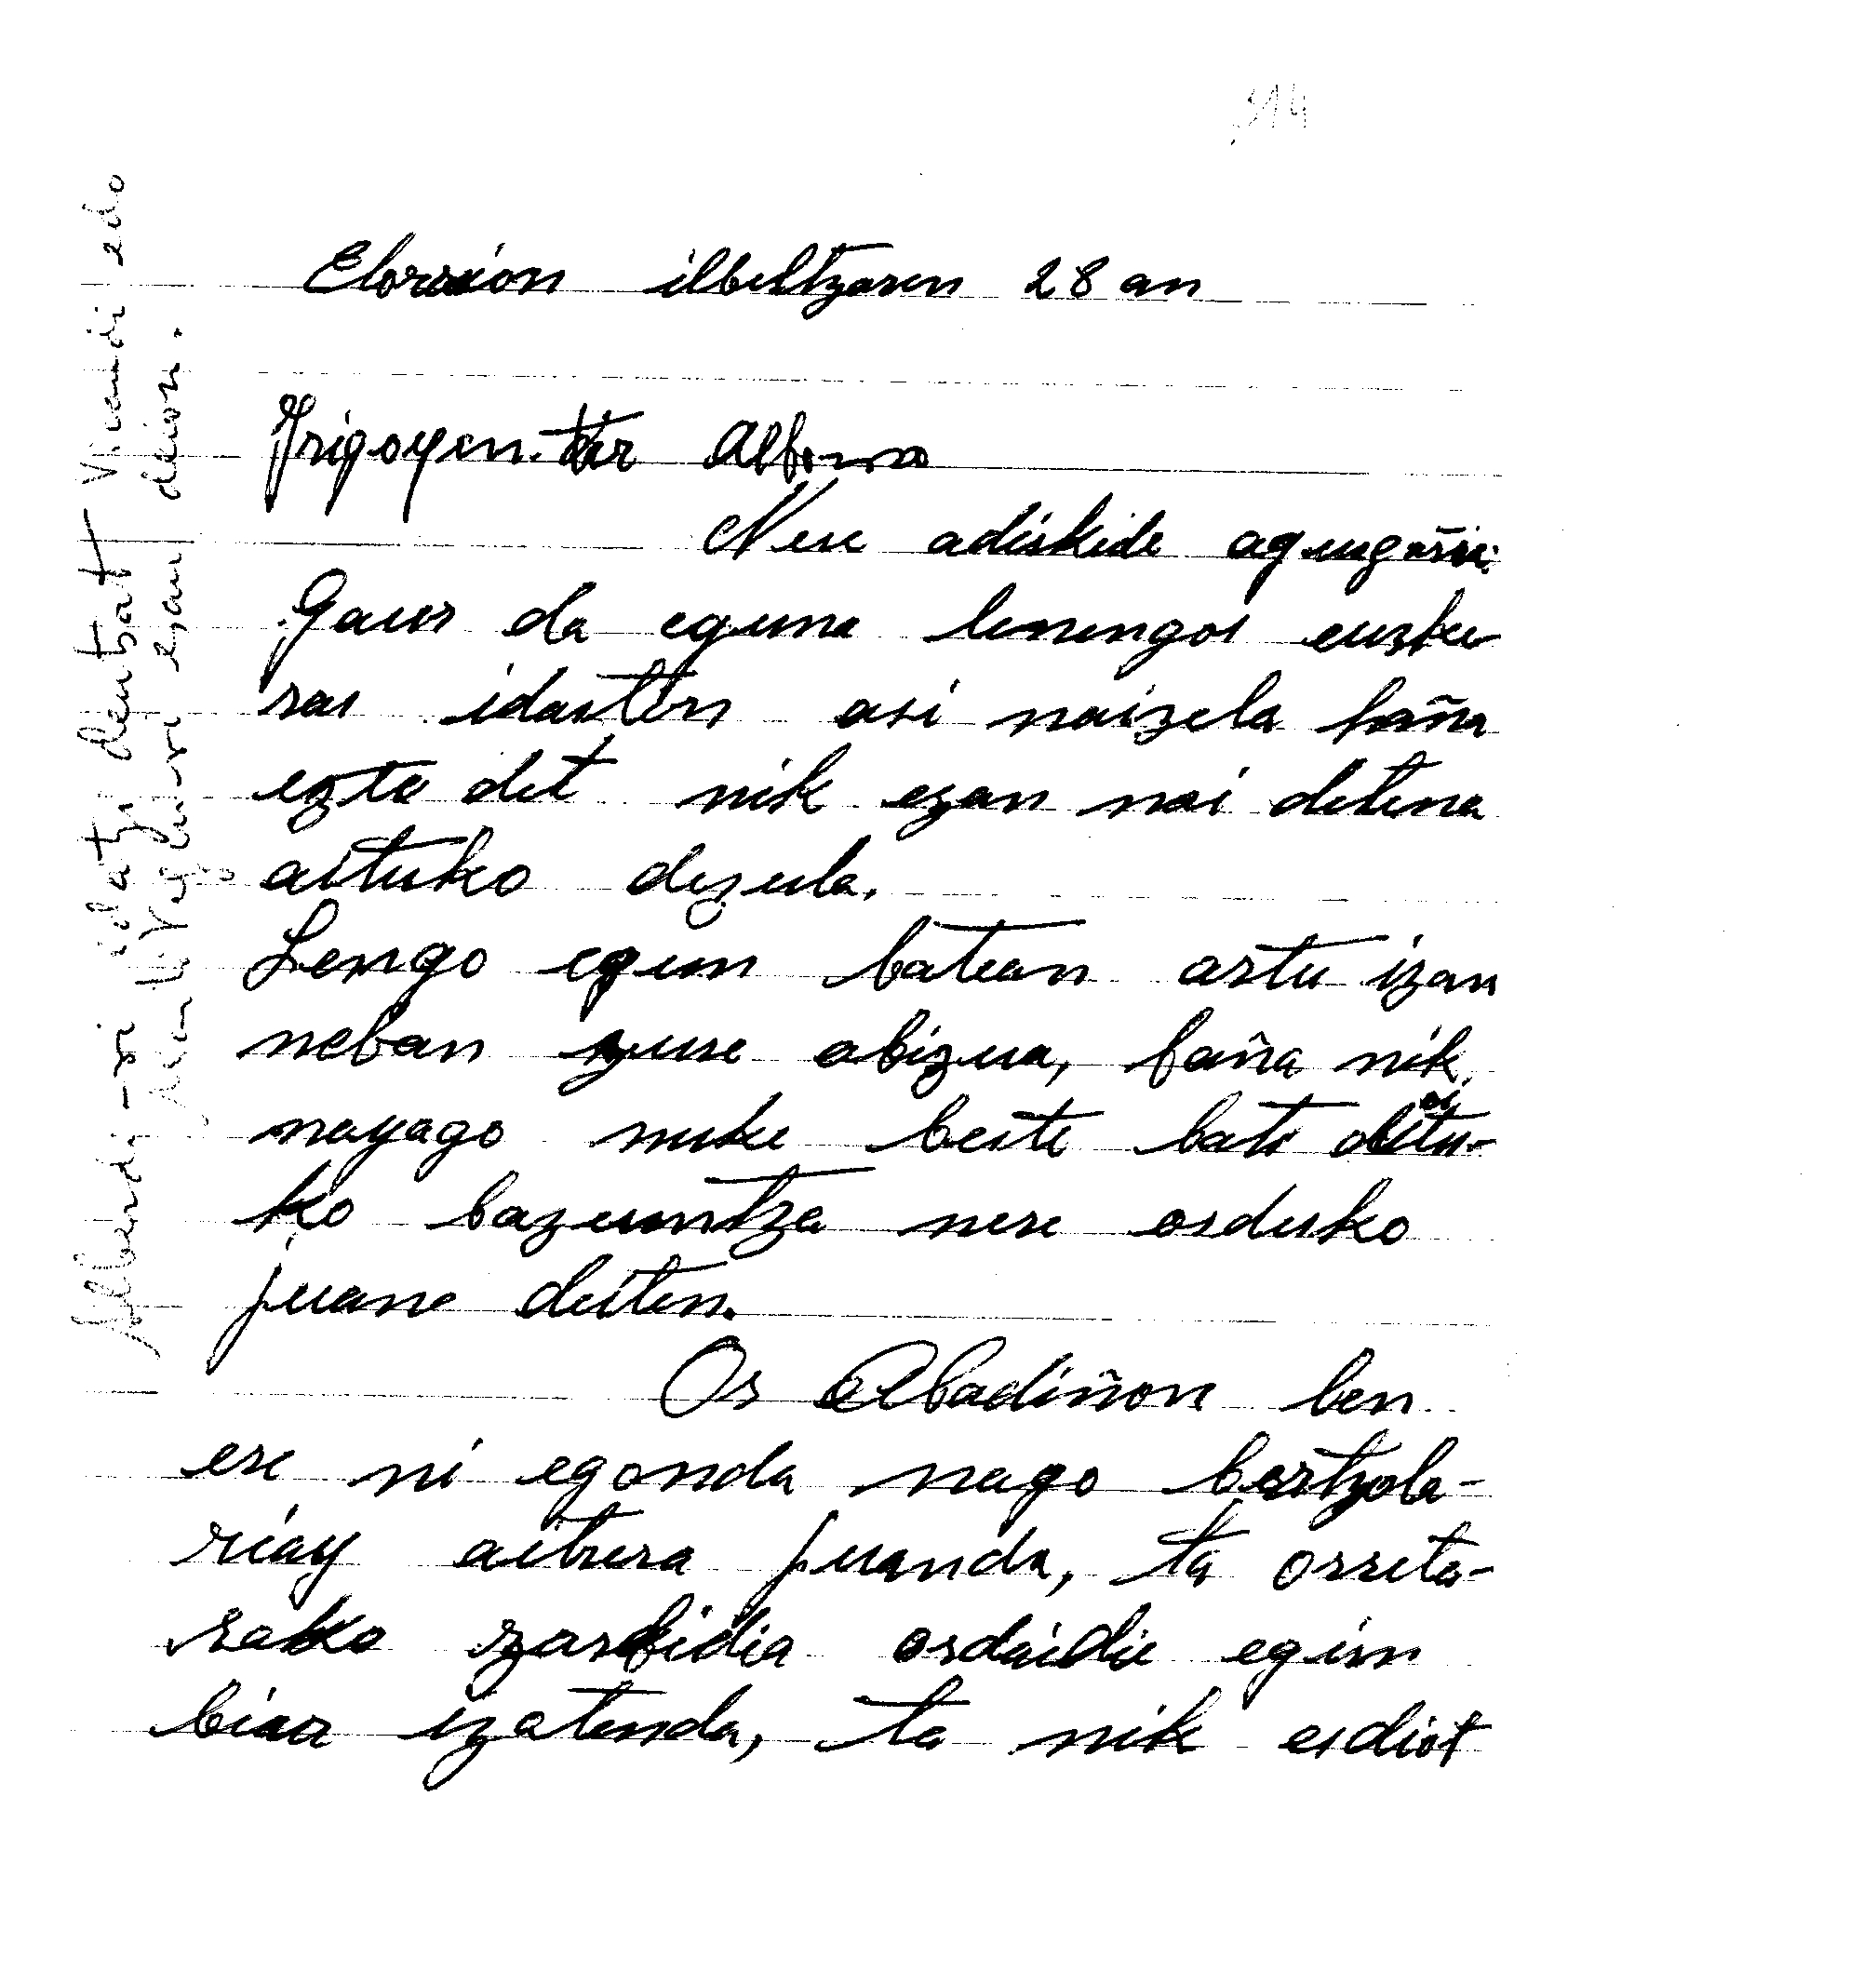 314
Elorrion ilbeltzaren 28 an
Yrigoyen.tar Alfonso
Nere adiskide agurgarri:
Gaur da eguna lenengoz euzke
raz idazten asi naizela baña
ezte det nik ezan nai detena
aituko dezula.
Lengo egun batean artu izan
neban zure abizua, baña nik
nayago nuke beste bati deitu-
ko bazuntza nere orduko
juane deiten.
Or Abadiñon ben
ere ni egonda nago bertzola-
riay aitzera juanda, ta orreta-
rako zarbidia ordaidie egin
biar izatenda, ta nik eidiot
Alberdi-ri idatzi deutsat Vicandi edo
ezan deion.